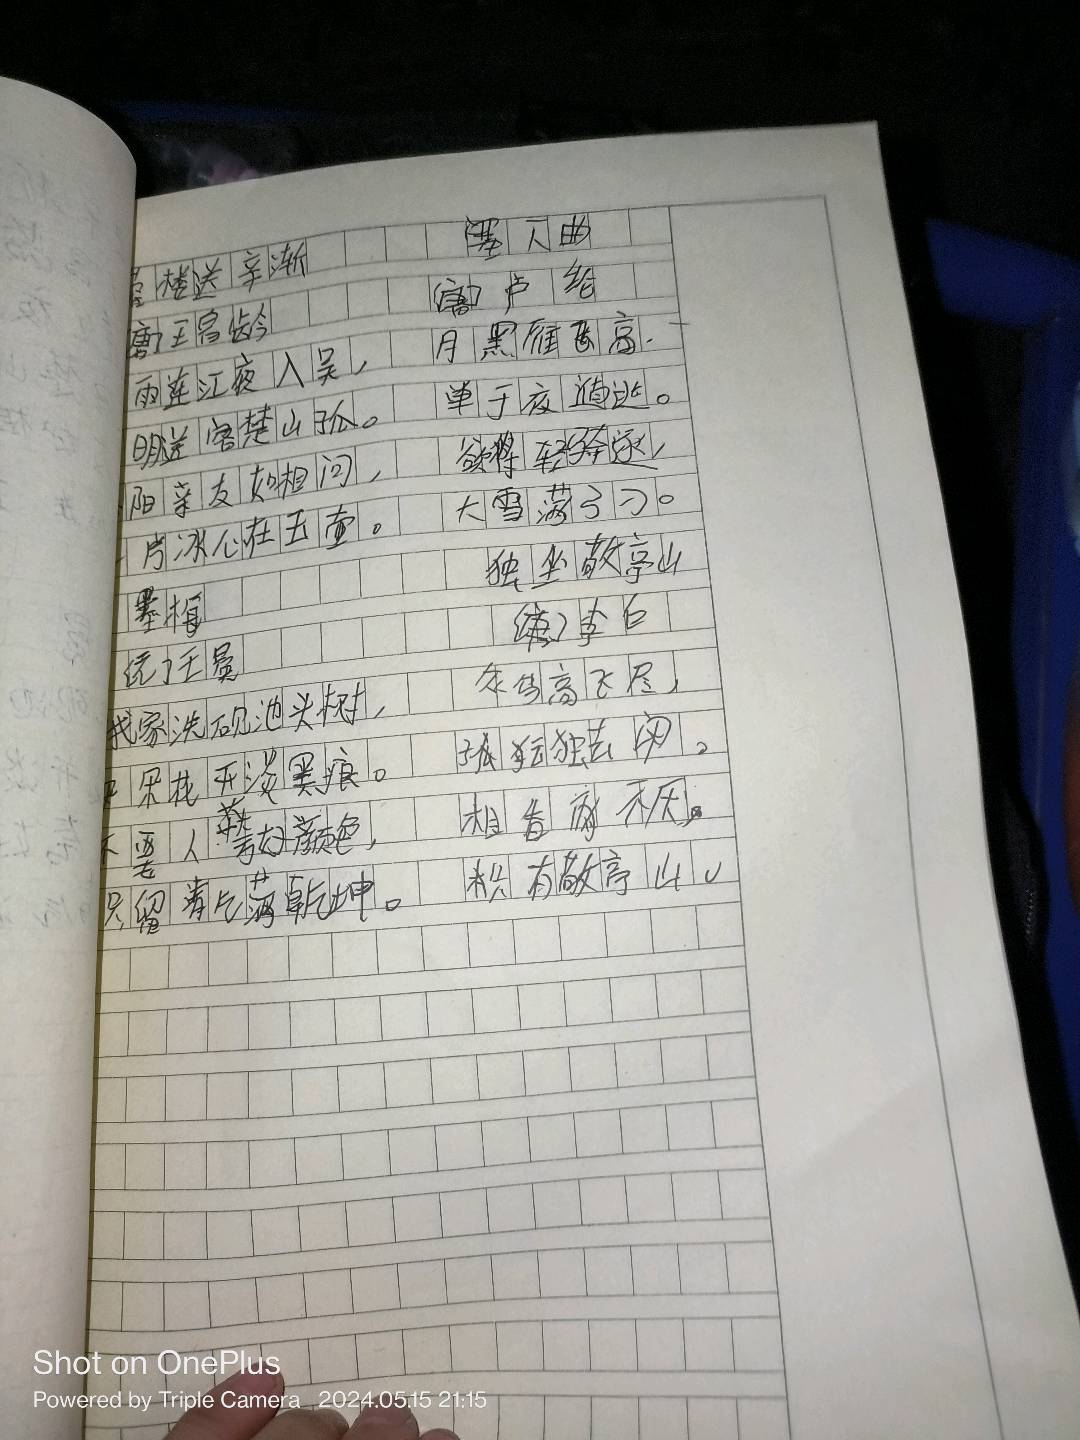 楼送辛渐
唐王昌龄
雨连江夜入吴，
明送客楚山孤。
阳亲友如相问，
片冰心在玉壶。
墨梅
王冕
我家洗砚池头树，
朵花开淡墨痕。
不要人夸好颜色，
只留清气满乾坤。
塞下曲
唐卢纶
月黑雁飞高.
单于夜遁逃。
欲将轻骑逐，
大雪满弓刀。
独坐敬亭山
唐李白
众鸟高飞尽，
孤云独去闲。
相看两不厌。
只有敬亭山
Shot on OnePlus
Powered by Triple Camera 2024.05.15 21:15